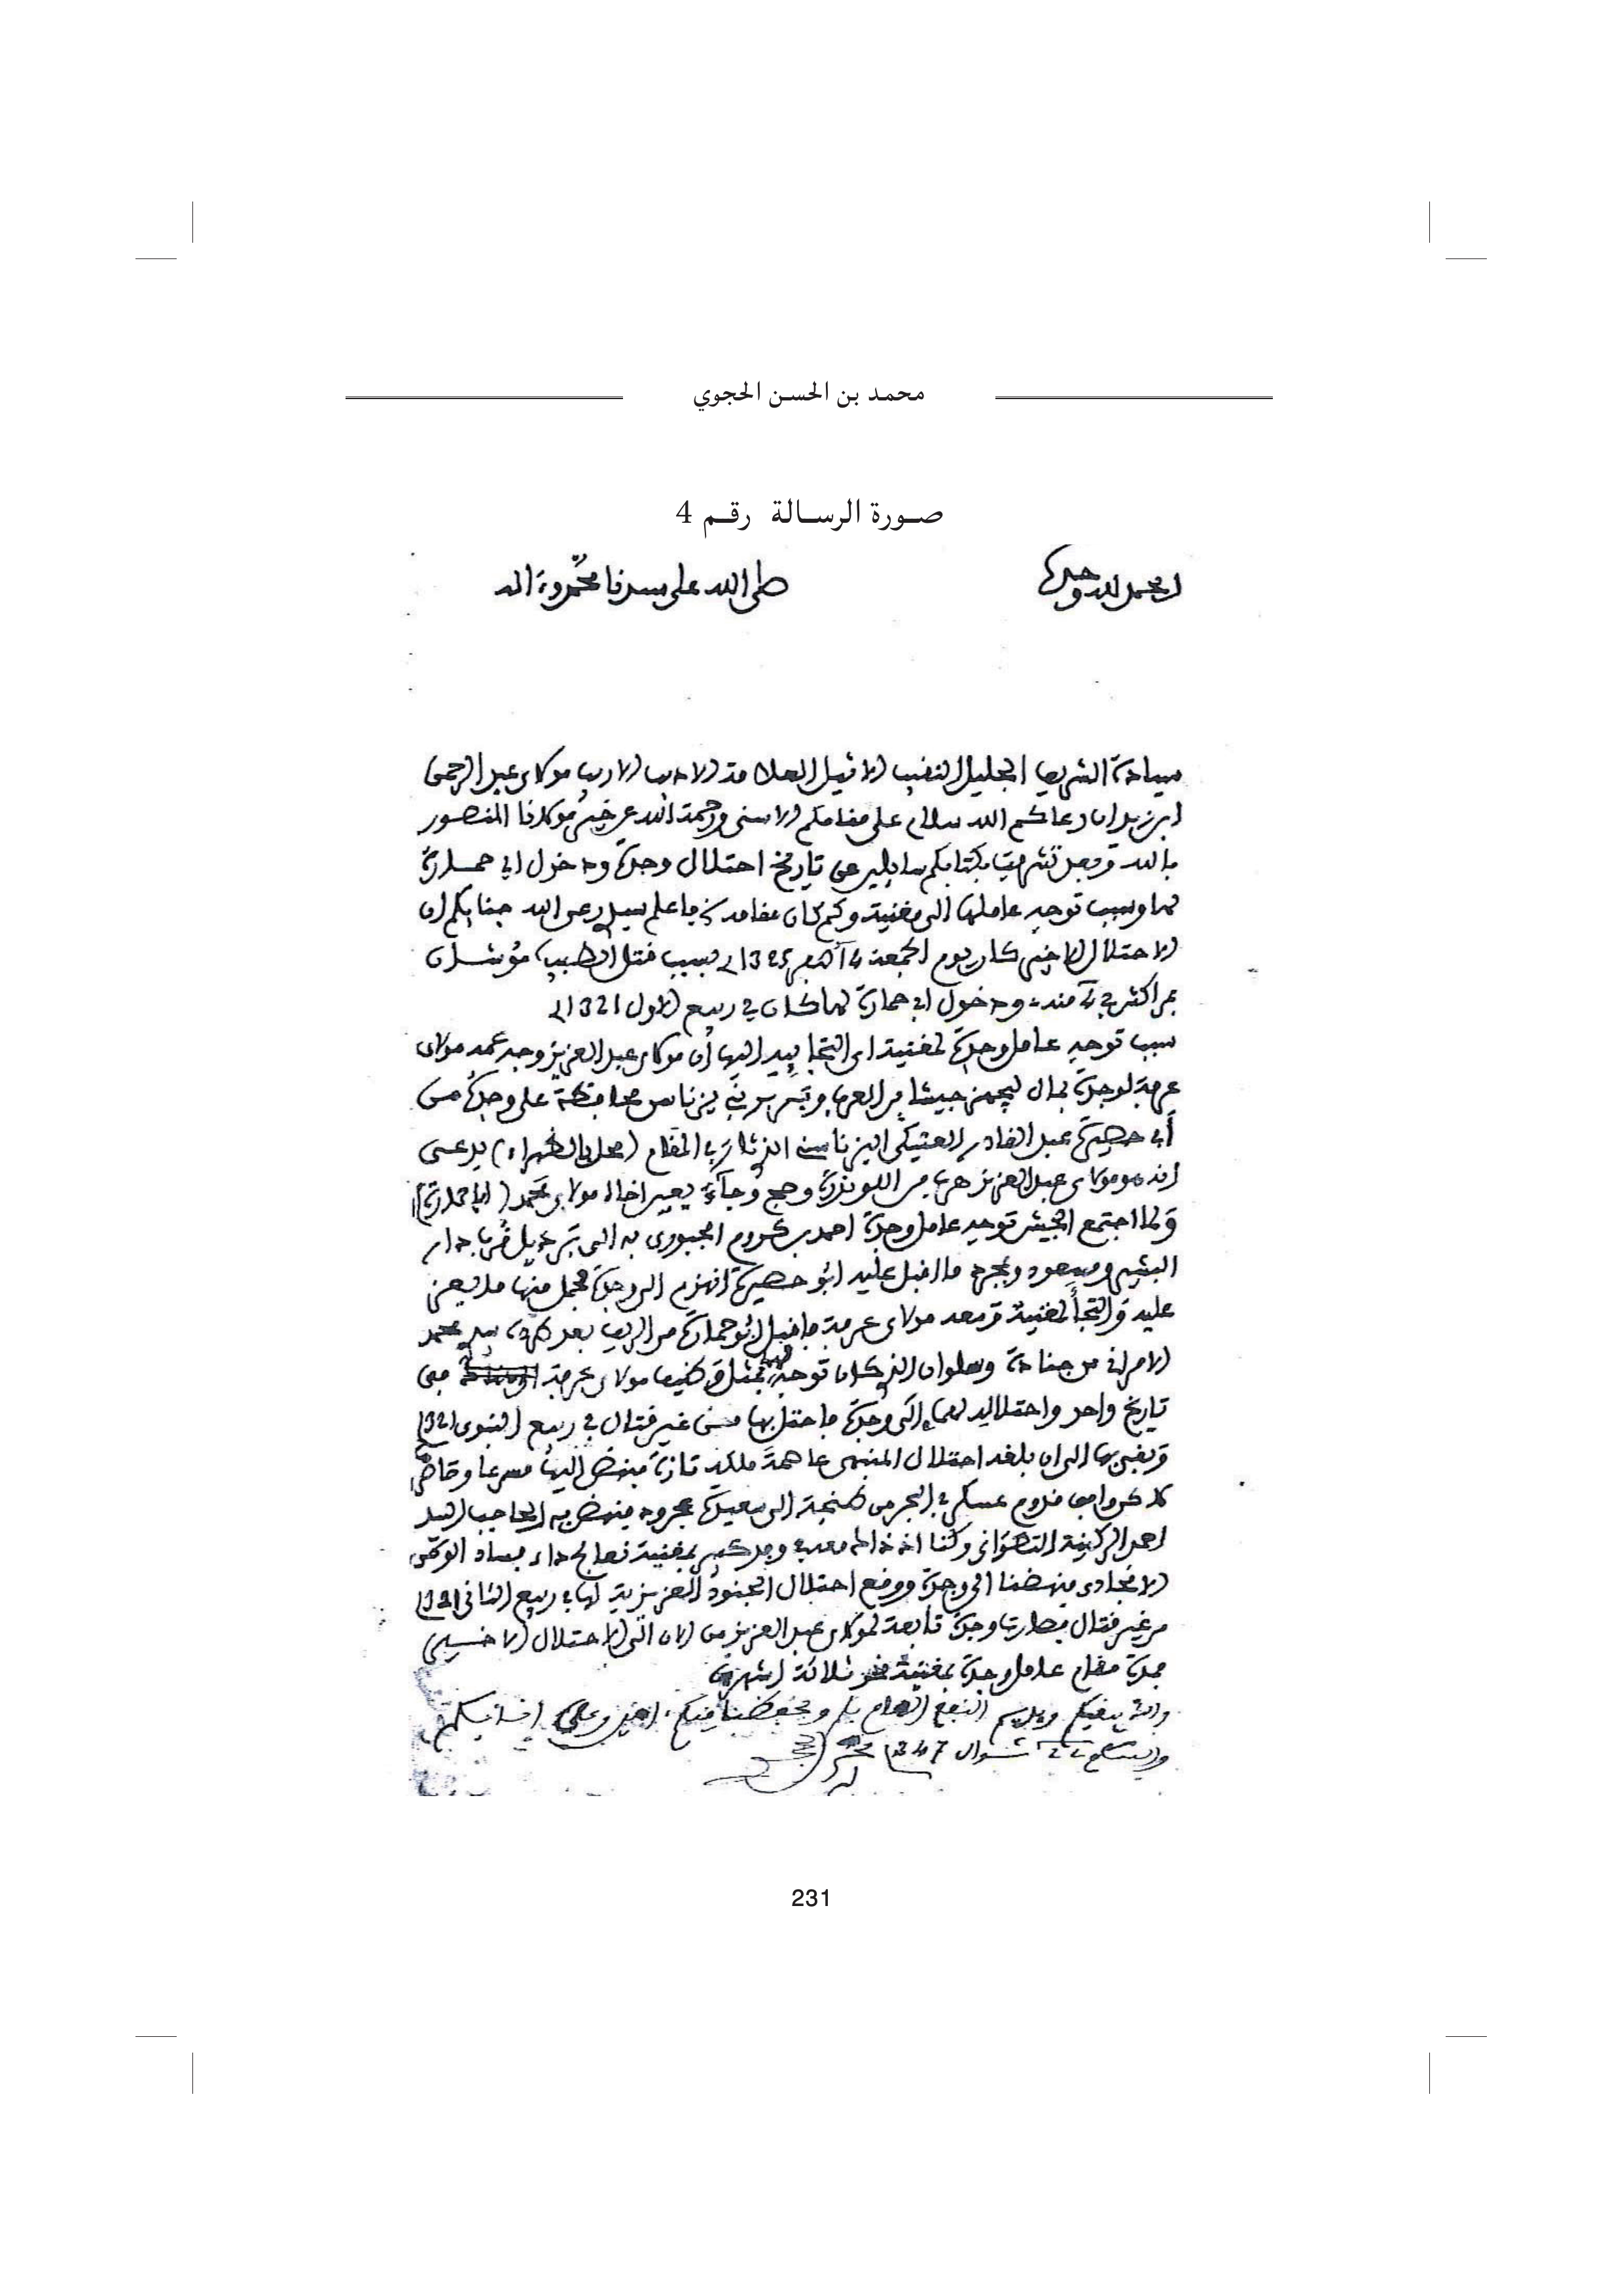 محمد بن الحسن الحجوي
صورة الرسالة رقم 4
الحمد لله وحده
صلى الله على سيدنا محمد وءاله
سيادة الشريف الجليل النقيب الاثيل العلامة الاديب الاريب مولاي عبد الرحمن
ابن زيدان رعاكم الله سلام على مقامكم الاسنى ورحمة الله عن خير مولانا المنصور
بالله وبعد تشرفت بكتابكم سائلين عن تاريخ احتلال وجدة ودخول ابي حمارة
لها وسبب توجه عاملها الى مغنية وكم كان مقامه فاعلم سيدي رعى الله جنابكم ان
الاحتلال الاخير كان يوم الجمعة 1325 بسبب قتل الطبيب موشان
بمراكش في ودخول ابي حمارة لها كان في ربيع الاول 1321
سبب توجه عامل وجدة لمغنية اي التجائه اليها أن مولاي عبد العزيز وجه عمه مولاي
عرفة لوجدة بمال ليجهز جيشا من العرب وبربر بني يزناسن محافظة على وجدة من
أبي حصيرة عبد القادر العتيكي اليزناسني الذي ثار بالمقام (محل بالظهراء) يدعى
انه هو مولاي عبد العزيز هرب من وحج وجاء يعين اخاه مولاي محمد (ابا حمارة)
ولما اجتمع الجيش توجه عامل وجدة احمد بن كروم الجبوري به الى قرب دار
البشير ومسعود وبمجرد ما اقبل عليه ابو حصيرة انهزم الى وجدة فحمل منها ما يعز
عليه والتجأ لمغنية ومعه مولاي عرفة فاقبل ابو حمارة من الريف بعد محمد
الامراني من جنادة وسلوان الذي كان توجه لهما بمثل وظيف مولاي عرفة في
تاريخ واحد واحتلاله لهما إلى وجدة فاحتل بها من غير قتال في ربيع النبوي 1321
وبقي بها الى ان بلغه احتلال المنبهي عاصمة ملكه تازة فنهض اليها مسرعا وقاض
قدوم عسكر في البحر من طنجة الى سعيدة عجرود فنهض به الحاجب السيد
احمد الركينة التطواني وكنا اذ ذاك معه وجدكبير بمغنية نعالج داء فساد الوقتى
الانجادي فنهضنا الى وجدة ووقع احتلال الجنود العزيزية لها في ربيع الثاني 1321
من غير قتال فصارت وجدة تابعة لمولاي عبد العزيز من الان الى الاحتلال الاخير
مدة مقام عامل وجدة بمغنية نحو ثلاثة اشهر
والله يبقيكم ويديم النفع العام بكم ويحفظنا فيكم امين وعلى
والسلام 22 شوال 1347 محمد الحجوي
231